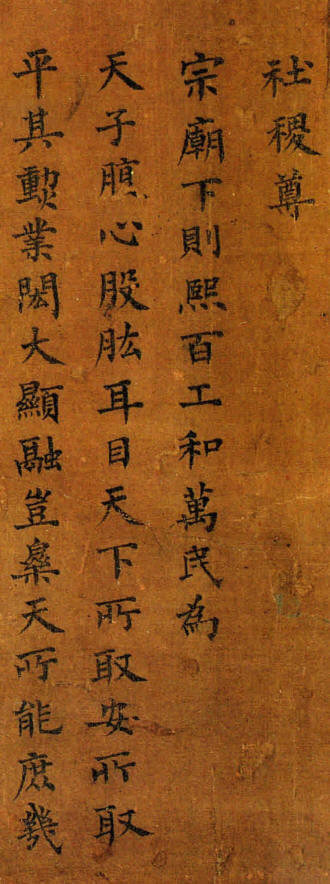 社稷尊
宗廟下則熙百工和萬民為
天子腹心股肱耳目天下所取安所取
平其勳業閎大顯融豈天所能庶幾